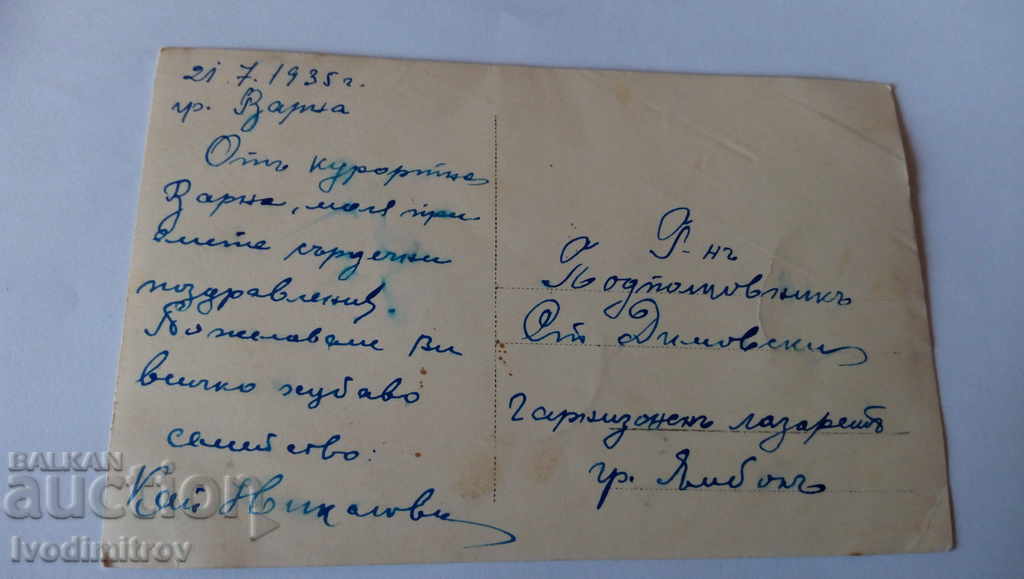 21.7.1935 г.
гр. Варна
Отъ курортна
Варна, моля при
емете сърдечни
поздравления.
Пожелаваме Ви
всичко хубаво
семейство:
Кап. Николови
Г-нъ
Подполковникъ
Ст. Димовски
Гарнизоненъ лазаретъ
гр. Ямболъ
BALKAN
auction
Ivodimitrov